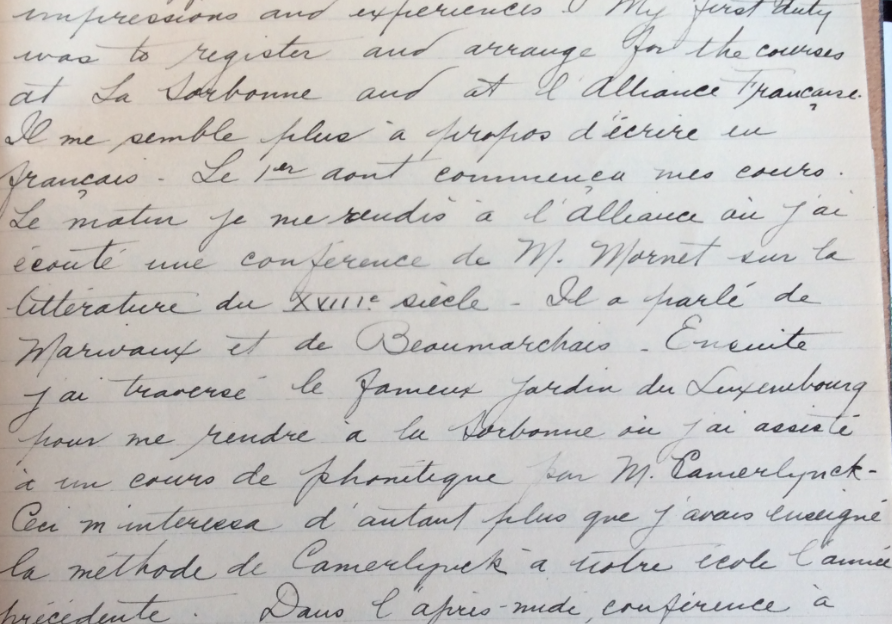 impressions and experiences. My first duty
was to register and arrange for the courses
at La Sorbonne and at l'Alliance Française.
Il me semble plus à propos d'écrire en
français - Le 1er août commença mes cours.
Le matin je me rendis à l'Alliance où j'ai
écouté une conférence de M. Mornet sur la
littérature du XVIIIe siècle - Il a parlé de
Marivaux et de Beaumarchais - Ensuite
j'ai traversé le fameux jardin du Luxembourg
pour me rendre à la Sorbonne où j'ai assisté
à un cours de phonétique par M. Camerlynck -
Ceci m'interessa d'autant plus que j'avais enseigné
la méthode de Camerlynck à notre école l'année
précédente. Dans l'après-midi, conférence à